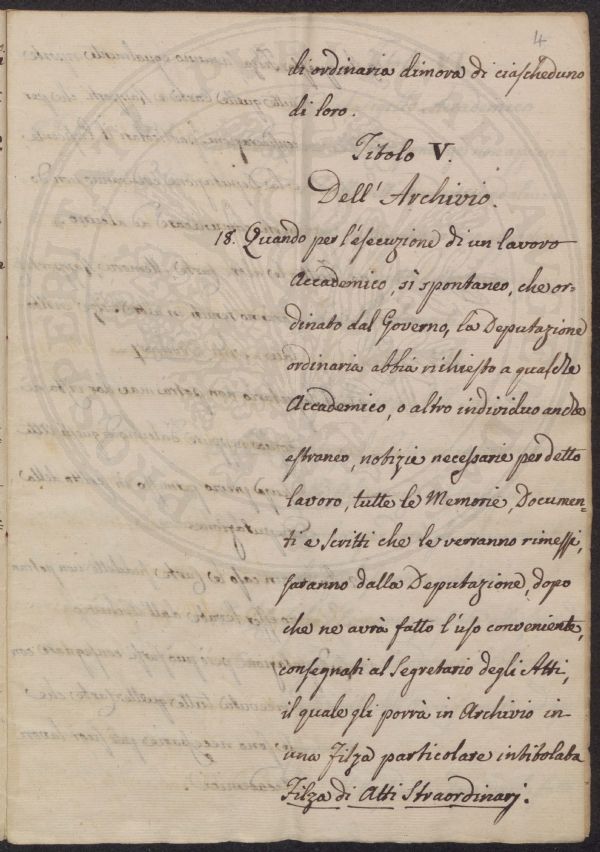 4
di ordinaria dimora di ciascheduno
di loro.
Titolo V.
Dell' Archivio.
18. Quando per l'esecuzione di un lavoro
Accademico, sì spontaneo, che or-
dinato dal Governo, la Deputazione
ordinaria abbia richiesto a qualche
Accademico, o altro individuo anche
estraneo, notizie necessarie per detto
lavoro, tutte le Memorie, Documen-
ti e Scritti che le verranno rimessi,
saranno dalla Deputazione, dopo
che ne avrà fatto l'uso conveniente,
consegnati al Segretario degli Atti,
il quale gli porrà in Archivio in
una Filza particolare intitolata
Filza di Atti Straordinarj.